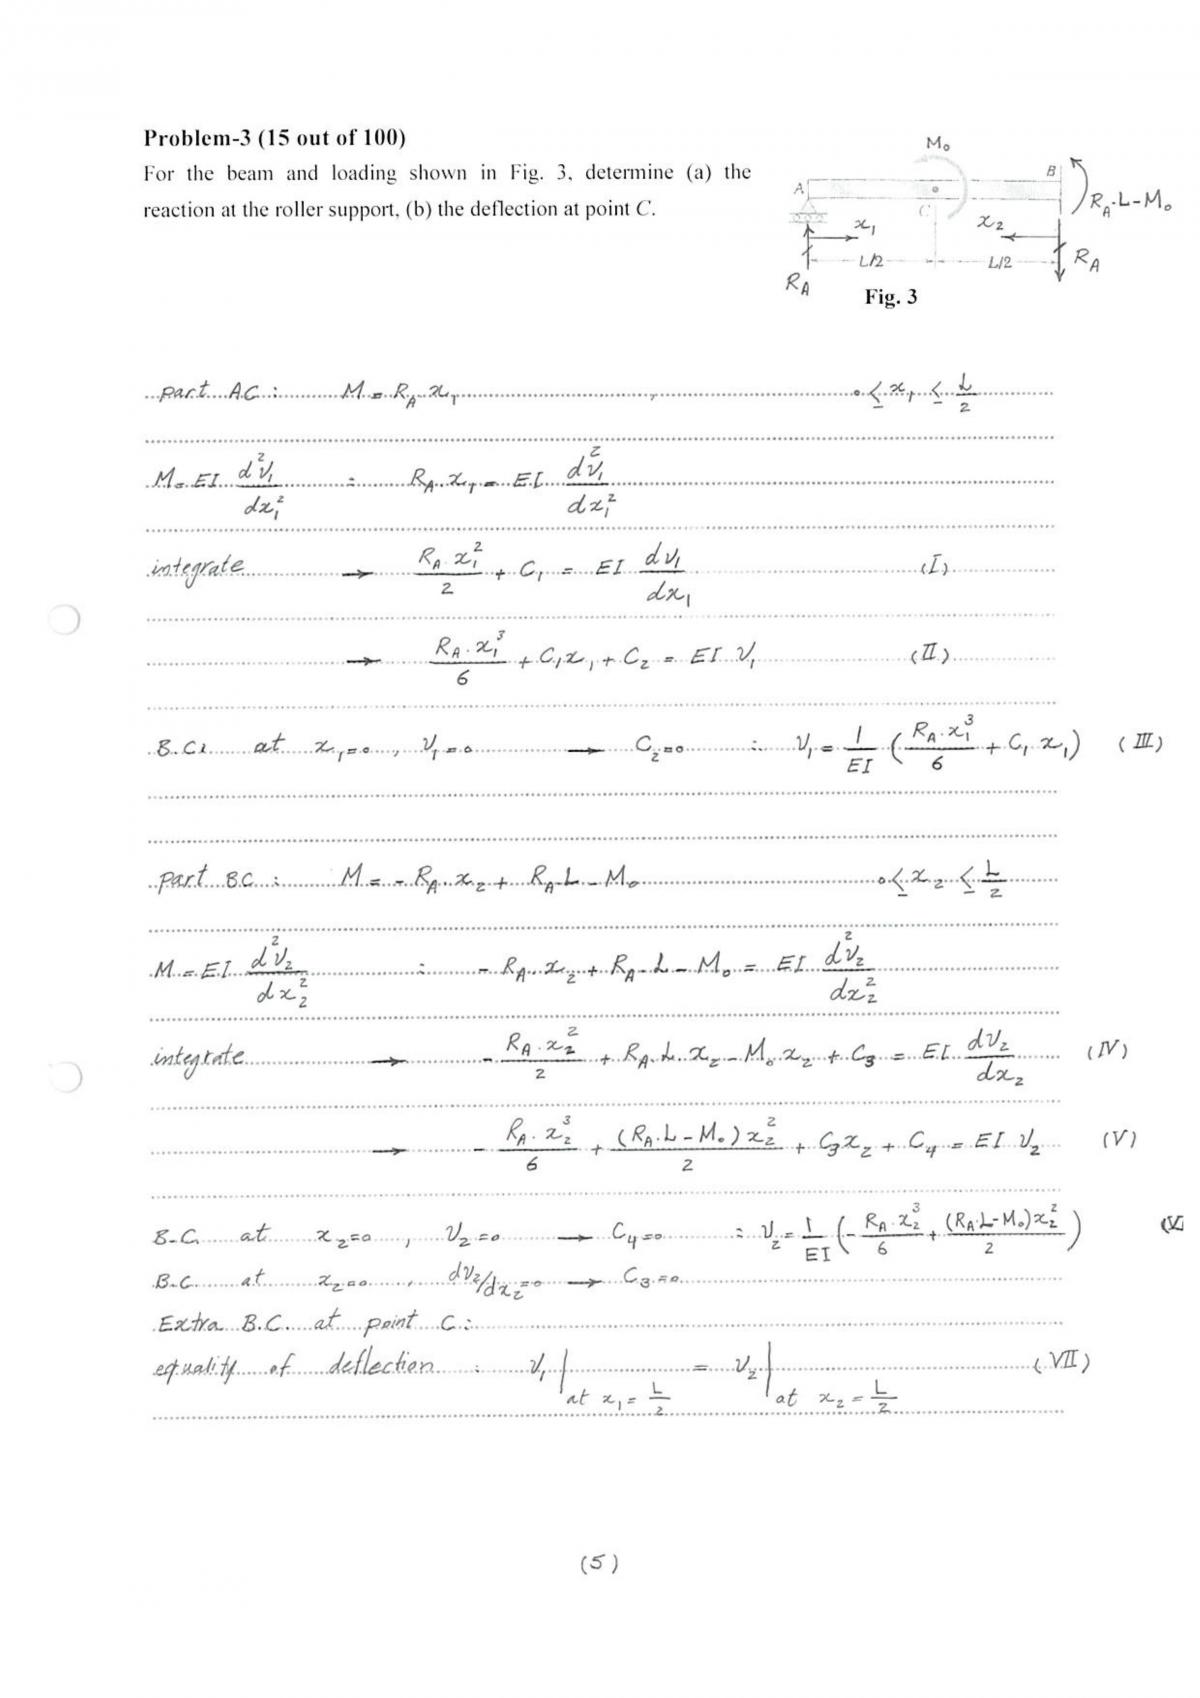 Problem-3 (15 out of 100)
For the beam and loading shown in Fig. 3, determine (a) the
reaction at the roller support, (b) the deflection at point C.
M₀
A
B
C
R_A·L-M₀
x₁
x₂
L/2
L/2
R_A
R_A
Fig. 3
part AC: M = R_A x₁ , 0 ≤ x₁ ≤ L/2
M = EI d²v₁/dx₁² : R_A·x₁ = EI d²v₁/dx₁²
integrate → R_A·x₁²/2 + C₁ = EI dv₁/dx₁ (I)
→ R_A·x₁³/6 + C₁x₁ + C₂ = EI v₁ (II)
B.C. at x₁=0, v₁=0 → C₂=0 ∴ v₁ = 1/EI (R_A·x₁³/6 + C₁x₁) (III)
part BC: M = -R_A·x₂ + R_A·L - M₀ 0 ≤ x₂ ≤ L/2
M = EI d²v₂/dx₂² : -R_A·x₂ + R_A·L - M₀ = EI d²v₂/dx₂²
integrate → -R_A·x₂²/2 + R_A·L·x₂ - M₀x₂ + C₃ = EI dv₂/dx₂ (IV)
→ -R_A·x₂³/6 + (R_A·L-M₀)x₂²/2 + C₃x₂ + C₄ = EI v₂ (V)
B.C. at x₂=0, v₂=0 → C₄=0 ∴ v₂ = 1/EI (-R_A·x₂³/6 + (R_A·L-M₀)x₂²/2)
B.C. at x₂=0, dv₂/dx₂=0 → C₃=0
Extra B.C. at point C:
equality of deflection : v₁| at x₁ = L/2 = v₂| at x₂ = L/2 (VII)
(5)